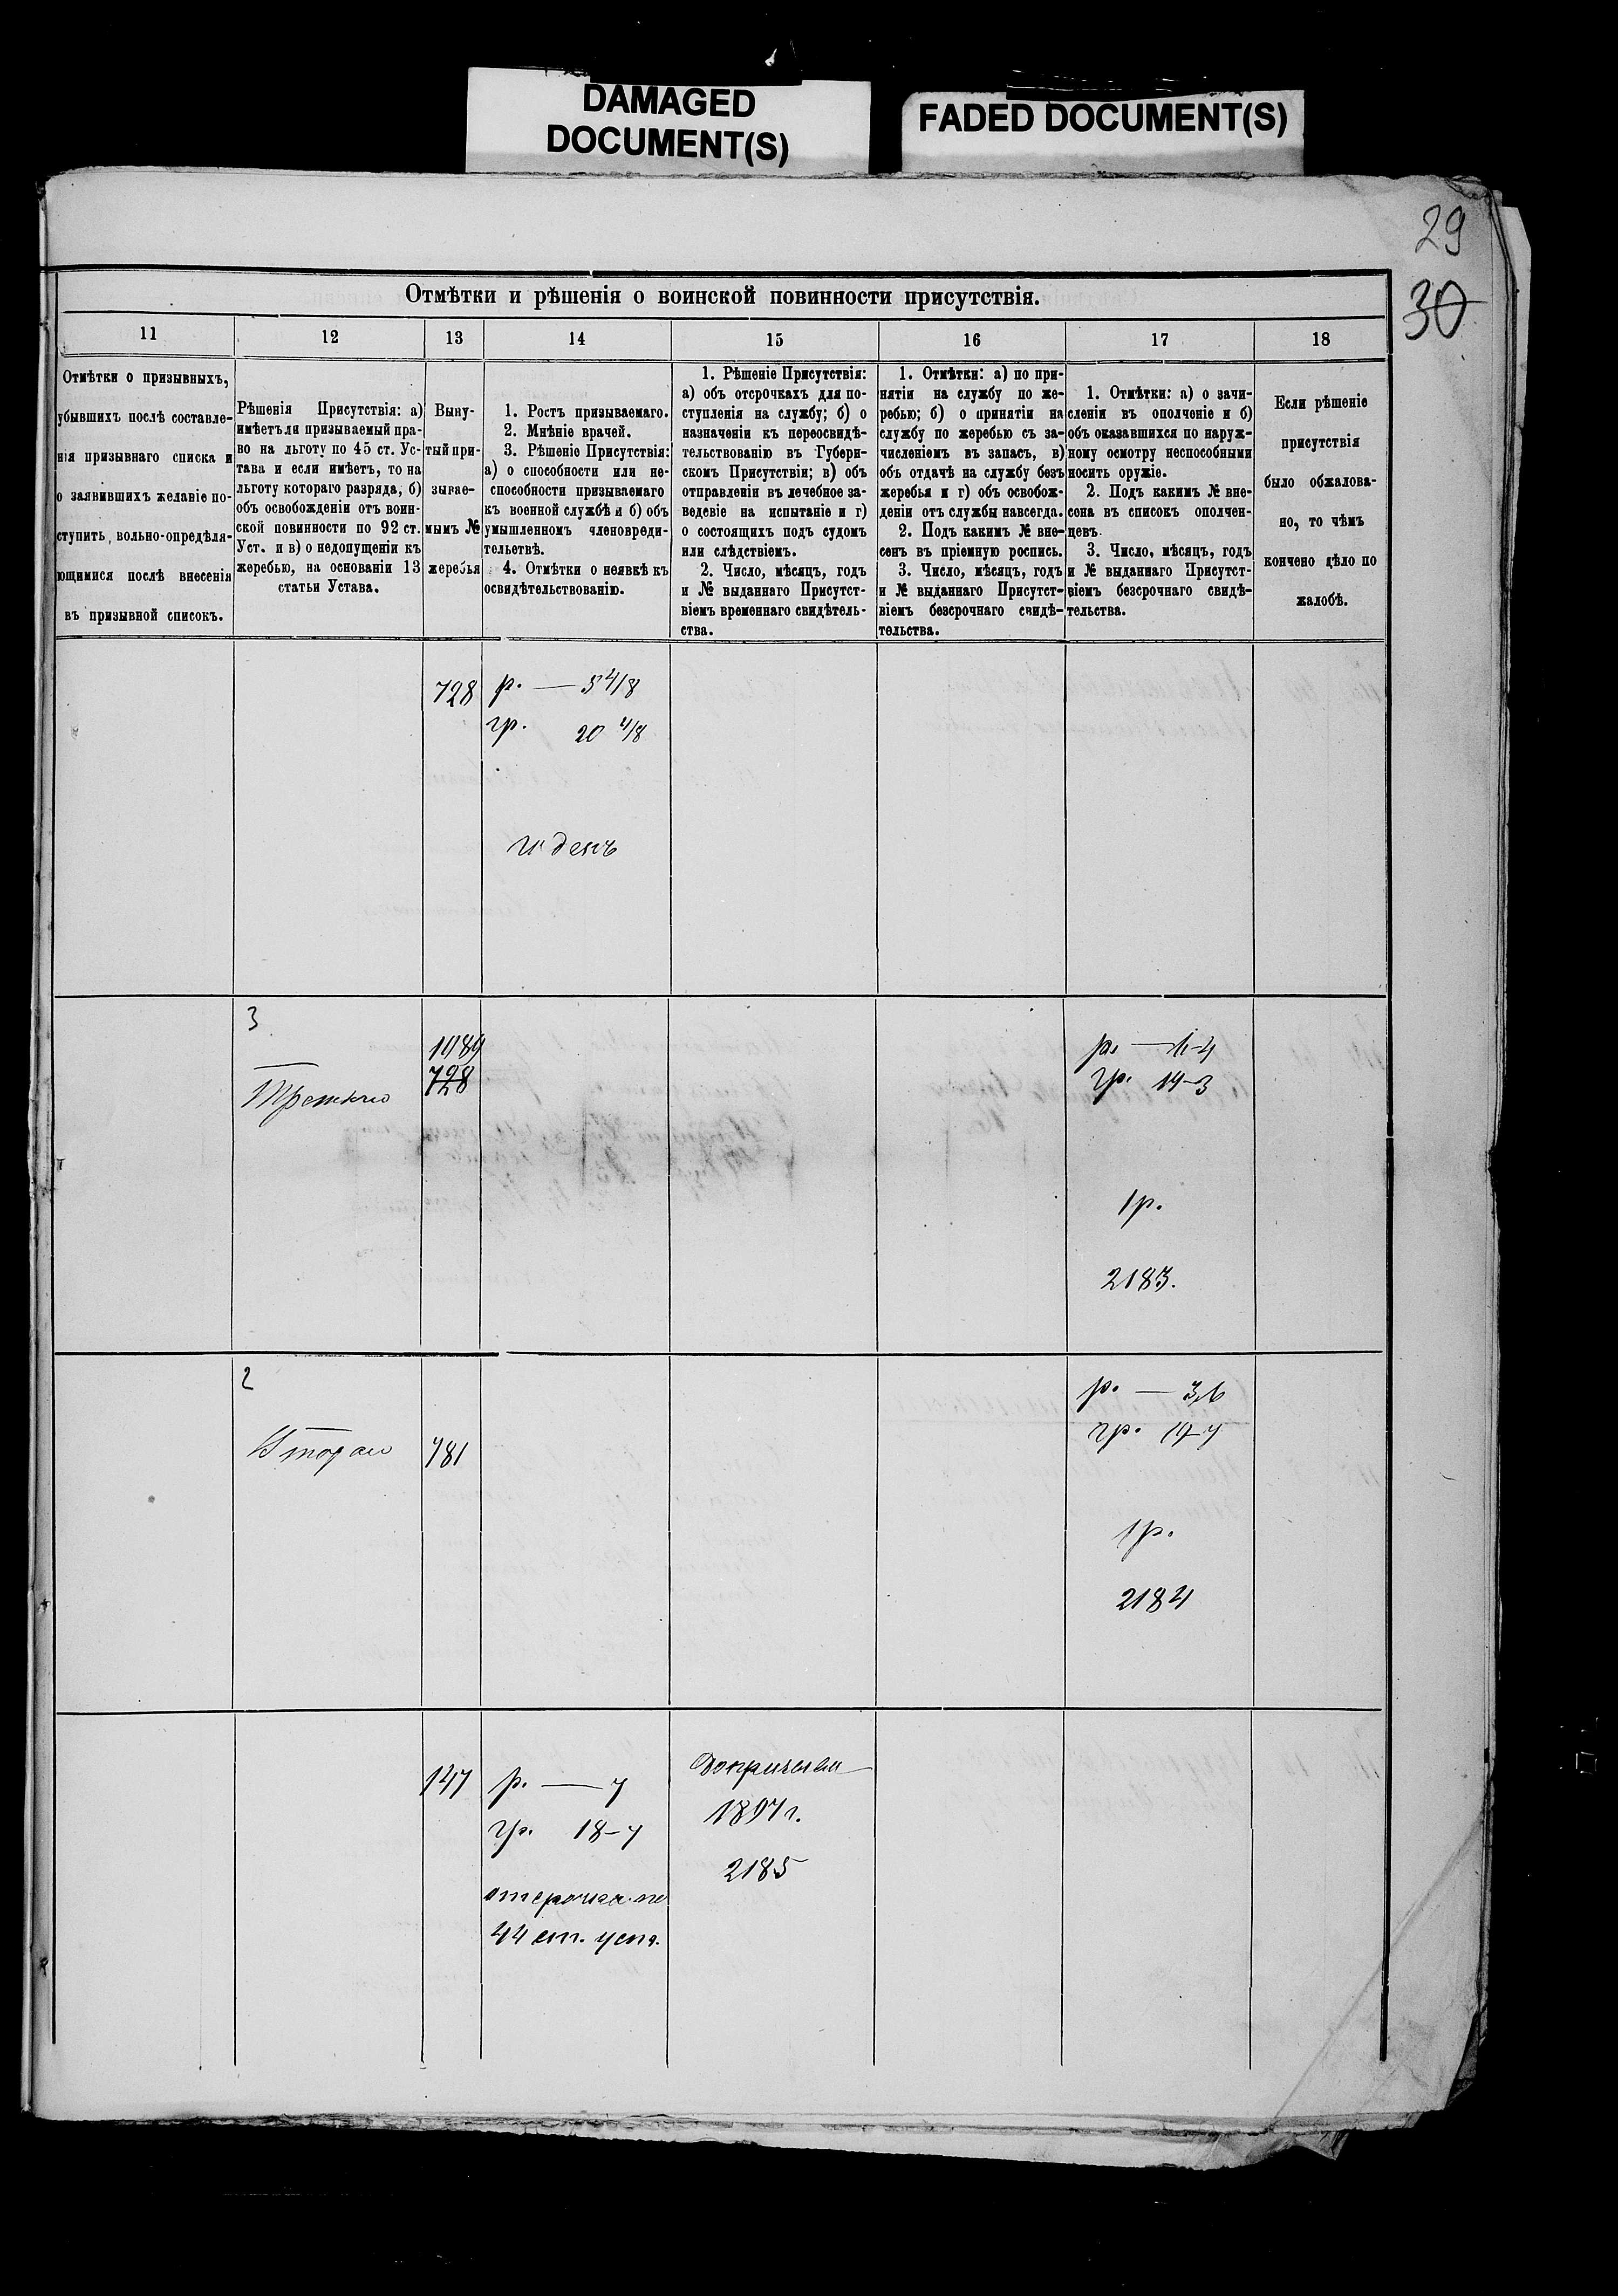 DAMAGED
DOCUMENT(S)
FADED DOCUMENT(S)
29
30
Отмѣтки и рѣшенія о воинской повинности присутствія.
11
12
13
14
15
16
17
18
Отмѣтки о призывныхъ,
убывшихъ послѣ составле-
нія призывнаго списка и
о заявившихъ желаніе по-
ступить вольно-опредѣля-
ющимися послѣ внесенія
въ призывной списокъ.
Рѣшенія Присутствія: а)
имѣетъ ли призываемый пра-
во на льготу по 45 ст. Ус-
тава и если имѣетъ, то на
льготу котораго разряда, б)
объ освобожденіи отъ воин-
ской повинности по 92 ст.
Уст. и в) о недопущеніи къ
жеребью, на основаніи 13
статьи Устава.
Выну-
тый при-
зывае-
мымъ №
жеребья
1. Ростъ призываемаго.
2. Мнѣніе врачей.
3. Рѣшеніе Присутствія:
а) о способности или не-
способности призываемаго
къ военной службѣ и б) объ
умышленномъ членовреди-
тельствѣ.
4. Отмѣтки о неявкѣ къ
освидѣтельствованію.
1. Рѣшеніе Присутствія:
а) объ отсрочкахъ для по-
ступленія на службу; б) о
назначеніи къ переосвидѣ-
тельствованію въ Губерн-
скомъ Присутствіи; в) объ
отправленіи въ лечебное за-
веденіе на испытаніе и г)
о состоящихъ подъ судомъ
или слѣдствіемъ.
2. Число, мѣсяцъ, годъ
и № выданнаго Присутст-
віемъ временнаго свидѣтель-
ства.
1. Отмѣтки: а) по при-
нятіи на службу по же-
ребью; б) о принятіи на
службу по жеребью съ за-
численіемъ въ запасъ, в)
объ отдачѣ на службу безъ
жеребья и г) объ освобож-
деніи отъ службы навсегда.
2. Подъ какимъ № вне-
сенъ въ пріемную роспись.
3. Число, мѣсяцъ, годъ
и № выданнаго Присутст-
віемъ безсрочнаго свидѣ-
тельства.
1. Отмѣтки: а) о зачи-
сленіи въ ополченіе и б)
объ оказавшихся по наруж-
ному осмотру неспособными
носить оружіе.
2. Подъ какимъ № вне-
сена въ списокъ ополчен-
цевъ.
3. Число, мѣсяцъ, годъ
и № выданнаго Присутст-
віемъ безсрочнаго свидѣ-
тельства.
Если рѣшеніе
присутствія
было обжалова-
но, то чѣмъ
кончено дѣло по
жалобѣ.
728
р. — 5 4/8
гр. 20 4/8
годенъ
3
Третью
728
гр. 19-3
1р.
2183.
2
Вторую
781
р. —
гр.
1р.
2184
147
р. — 7
гр. 18-7
отсрочка по
44 ст. уст.
До призыва
1897 г.
2185